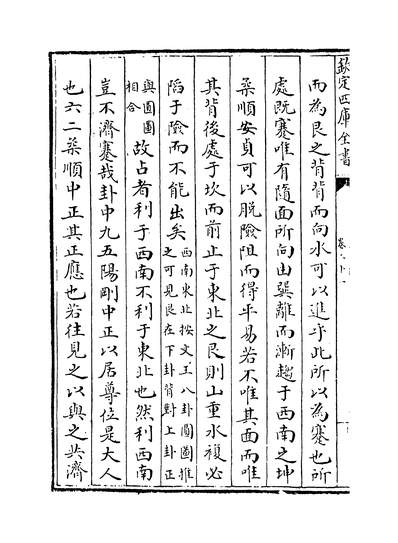 欽定四庫全書
而為艮之背背而向水可以進乎此所以為蹇也所
處既蹇唯有隨面所向由巽離而漸趨于西南之坤
柔順安貞可以脱險阻而得平易若不唯其面而唯
其背後處于坎而前止于東北之艮則山重水複必
䧟于險而不能出矣西南東北按文王八卦圓圖推之可見艮在下卦背對上卦正
與圓圖相合故占者利于西南不利于東北也然利西南
豈不濟蹇哉卦中九五陽剛中正以居尊位是大人
也六二柔順中正其正應也若往見之以與之共濟